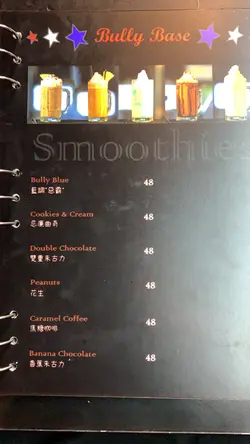 Bully Base
Smoothies
Bully Blue 48
藍調"惡霸"
Cookies & Cream 48
忌廉曲奇
Double Chocolate 48
雙重朱古力
Peanuts 48
花生
Caramel Coffee 48
焦糖咖啡
Banana Chocolate 48
香蕉朱古力